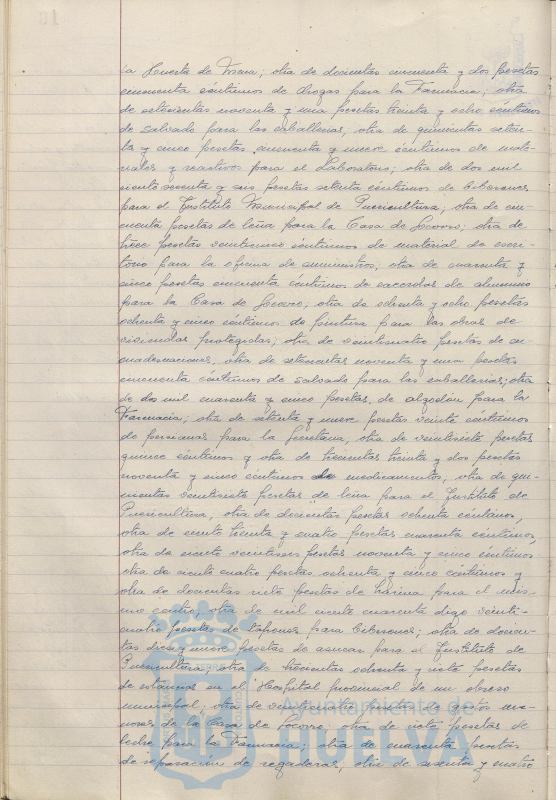 la Huerta de Mena; otra de doscientas cincuenta y dos pesetas
cincuenta céntimos de drogas para la Farmacia; otra
de setecientas noventa y una pesetas treinta y ocho céntimos
de salvado para las caballerías, otra de quinientas seten-
ta y cinco pesetas, cincuenta y nueve céntimos de mate-
riales y reactivos para el Laboratorio; otra de dos mil
ciento sesenta y seis pesetas setenta céntimos de biberones
para el Instituto Municipal de Puericultura; otra de cin-
cuenta pesetas de leña para la Casa de Socorro; otra de
trece pesetas veinticinco céntimos de material de escri-
torio para la oficina de suministros, otra de cuarenta y
cinco pesetas cincuenta céntimos de cacerolas de aluminio
para la Casa de Socorro; otra de ochenta y ocho pesetas
ochenta y cinco céntimos de pintura para las obras de
viviendas protegidas; otra de veinticuatro pesetas de en-
cuadernaciones, otra de setecientas noventa y una pesetas
cincuenta céntimos de salvado para las caballerías; otra
de dos mil cuarenta y cinco pesetas, de algodón para la
Farmacia; otra de setenta y nueve pesetas veinte céntimos
de persianas para la Secretaría, otra de veintisiete pesetas
quince céntimos y otra de trescientas treinta y dos pesetas
noventa y cinco céntimos de medicamentos, otra de qui-
nientas veintisiete pesetas de leña para el Instituto de
Puericultura, otra de doscientas pesetas ochenta céntimos,
otra de ciento treinta y cuatro pesetas cuarenta céntimos,
otra de ciento veintiseis pesetas noventa y cinco céntimos
otra de ciento cuatro pesetas ochenta y cinco céntimos y
otra de doscientas siete pesetas de harina para el mis-
mo centro, otra de mil ciento cuarenta digo veinti-
cuatro pesetas de tapones para biberones; otra de doscien-
tas diez y nueve pesetas de azucar para el Instituto de
Puericultura; otra de trescientas ochenta y siete pesetas
de estancias en el Hospital provincial de un obrero
municipal; otra de veinticuatro pesetas de gastos me-
nores de la Casa de Socorro; otra de siete pesetas de
leche para la Farmacia; otra de cuarenta pesetas
de reparación de regaderas, otra de sesenta y cuatro
Ayuntamiento de
HUELVA